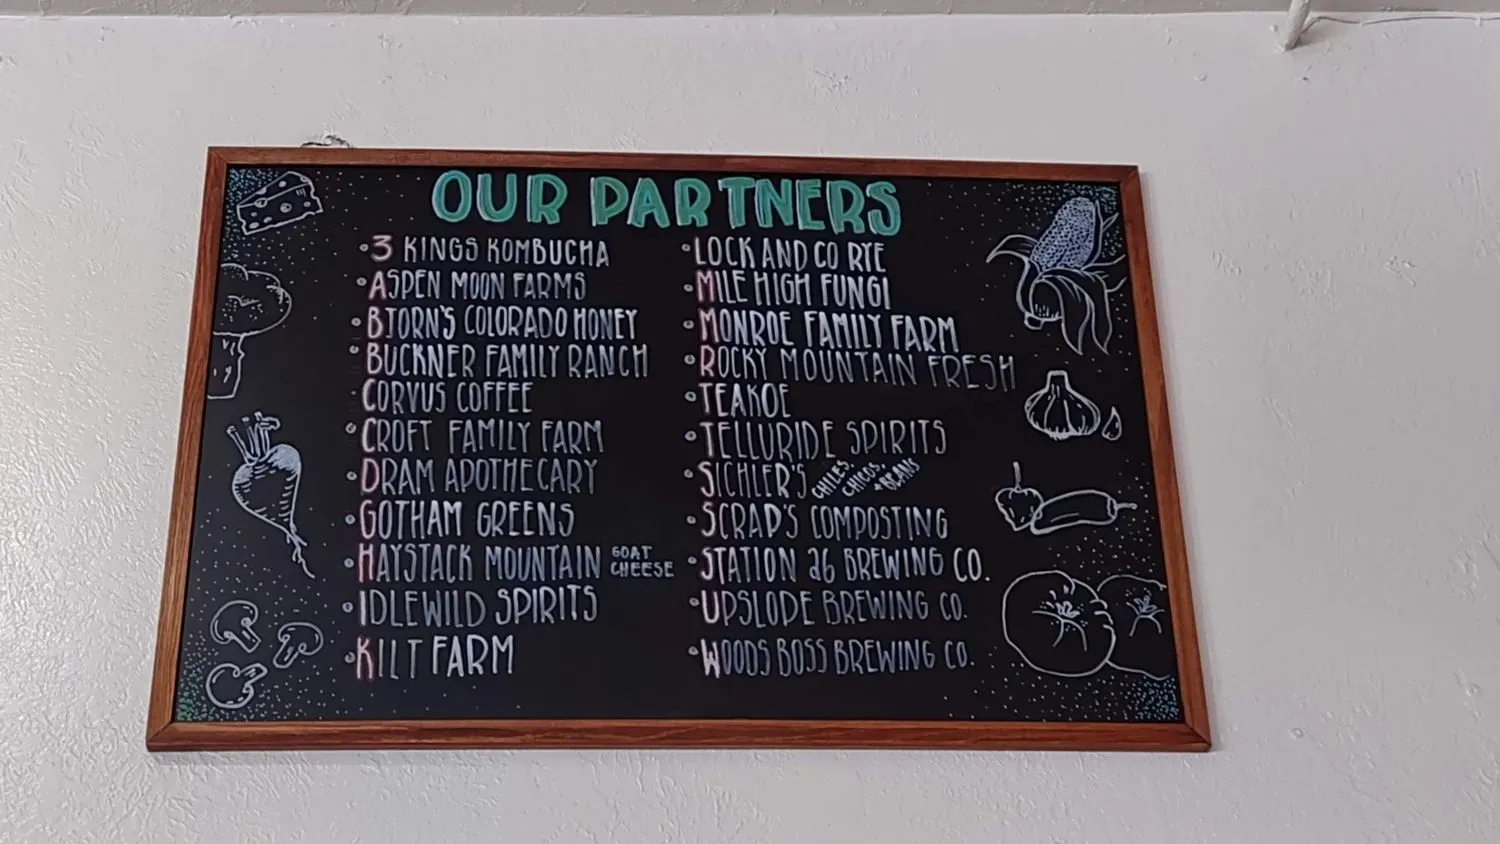 OUR PARTNERS
3 KINGS KOMBUCHA
ASPEN MOON FARMS
BJORN'S COLORADO HONEY
BUCKNER FAMILY RANCH
CORVUS COFFEE
CROFT FAMILY FARM
DRAM APOTHECARY
GOTHAM GREENS
HAYSTACK MOUNTAIN GOAT CHEESE
IDLEWILD SPIRITS
KILT FARM
LOCK AND CO RYE
MILE HIGH FUNGI
MONROE FAMILY FARM
ROCKY MOUNTAIN FRESH
TEAKOE
TELLURIDE SPIRITS
SICHLER'S CHILES, CHICOS, + BEANS
SCRAP'S COMPOSTING
STATION 26 BREWING CO.
UPSLOPE BREWING CO.
WOODS BOSS BREWING CO.